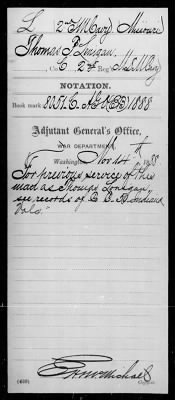 L 2" M Cav'y Missouri
Thomas P. Lonigan
, Co. C, 2nd Reg't M.S.M. Cav'y
NOTATION.
Book mark 8051 C. 1888
Adjutant General's Office,
WAR DEPARTMENT,
Washington, Nov 14th, 1888.
For previous service of this
man as Thomas Lonigan,
see records of C. B. Indiana
Vols.
Copyist.